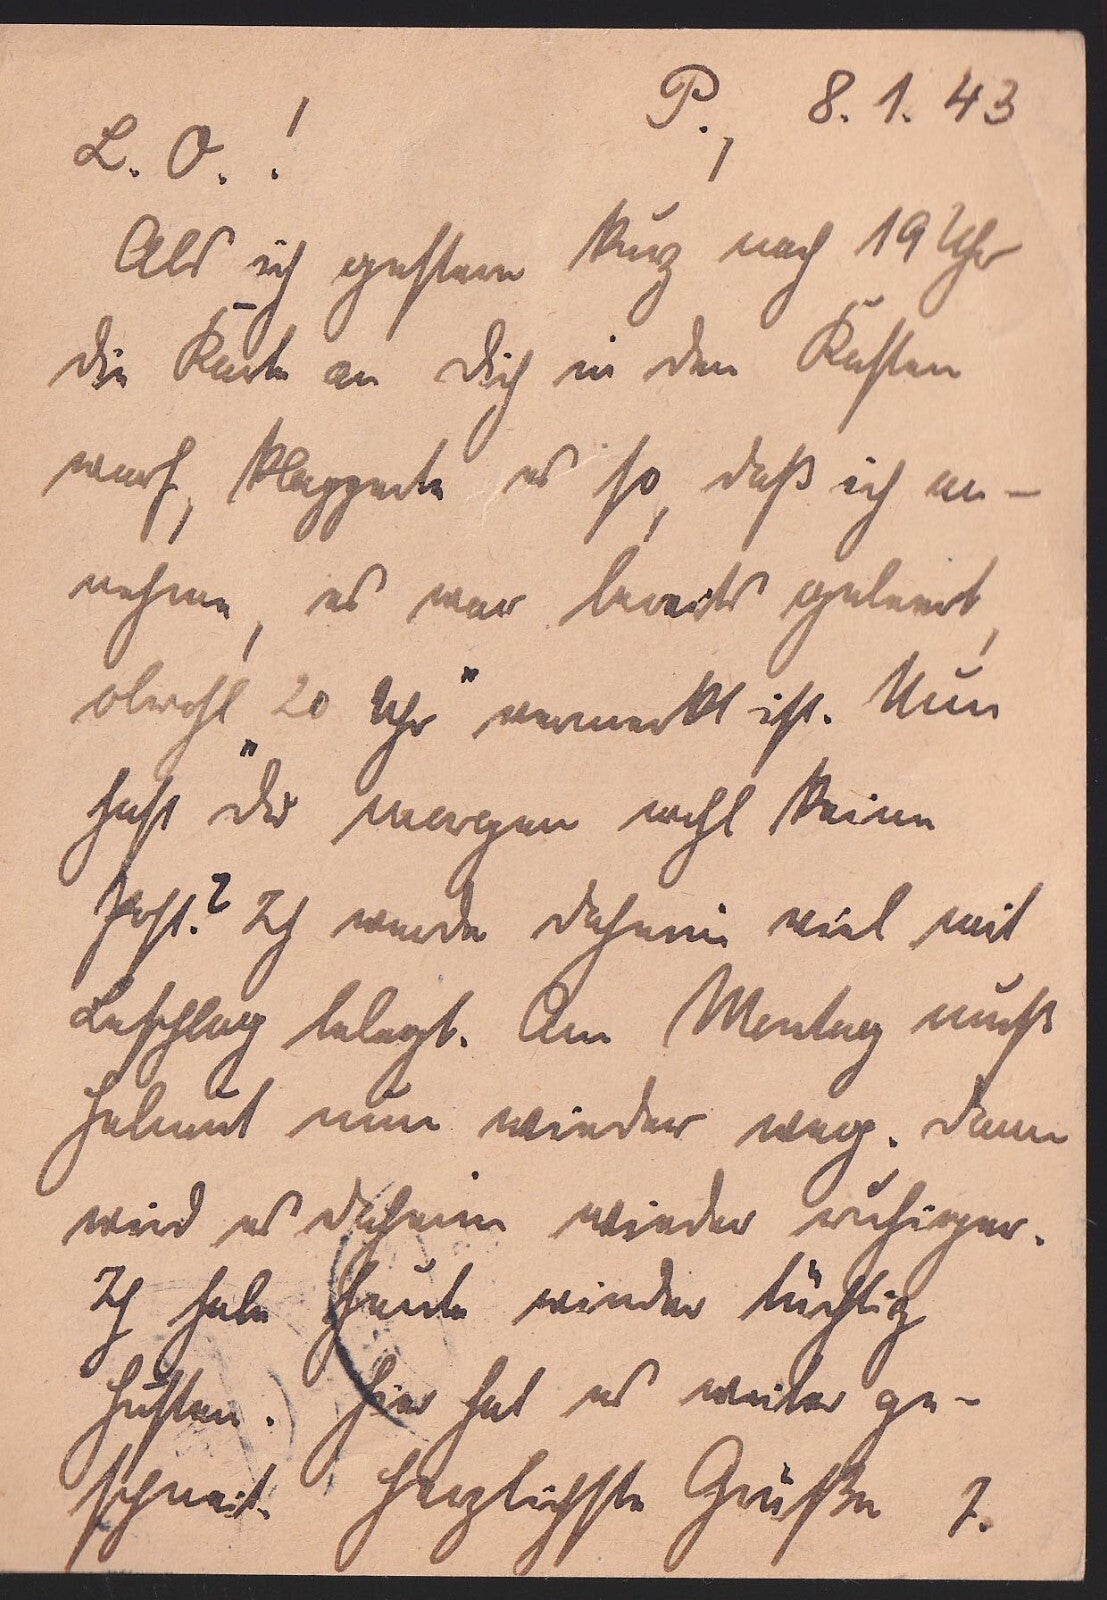 P., 8.1.43
L. O.!
Als ich gestern kurz nach 19 Uhr
die Karte an Dich in den Kasten
warf, klapperte es so, daß ich an-
nehme, es war bereits geleert,
obwohl „20 Uhr" vermerkt ist. Nun
hast Du morgen wohl keine
Post.? Ich werde daheim viel mit
Beschlag belegt. Am Montag muß
Helmut nun wieder weg. Dann
wird es daheim wieder ruhiger.
Ich habe heute wieder tüchtig
Husten. Hier hat es weiter ge-
schneit. Herzlichste Grüße J.